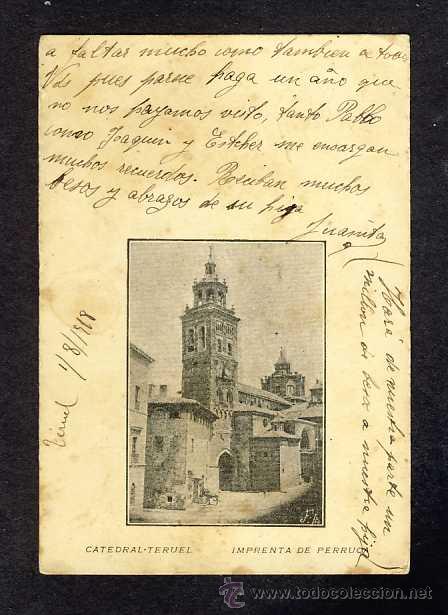 a faltar mucho como tambien a toos
Vds pues parece haga un año que
no nos hayamos visto, tanto Pablo
como Joaquin y Estcher me encargan
muchos recuerdos. Reciban muchos
besos y abrazos de su hija
Juanita
Hará de nuestra parte un
millon de besos a nuestra hija
Teruel 1/8/1918
CATEDRAL-TERUEL IMPRENTA DE PERRUCA
todocoleccion
www.todocoleccion.net